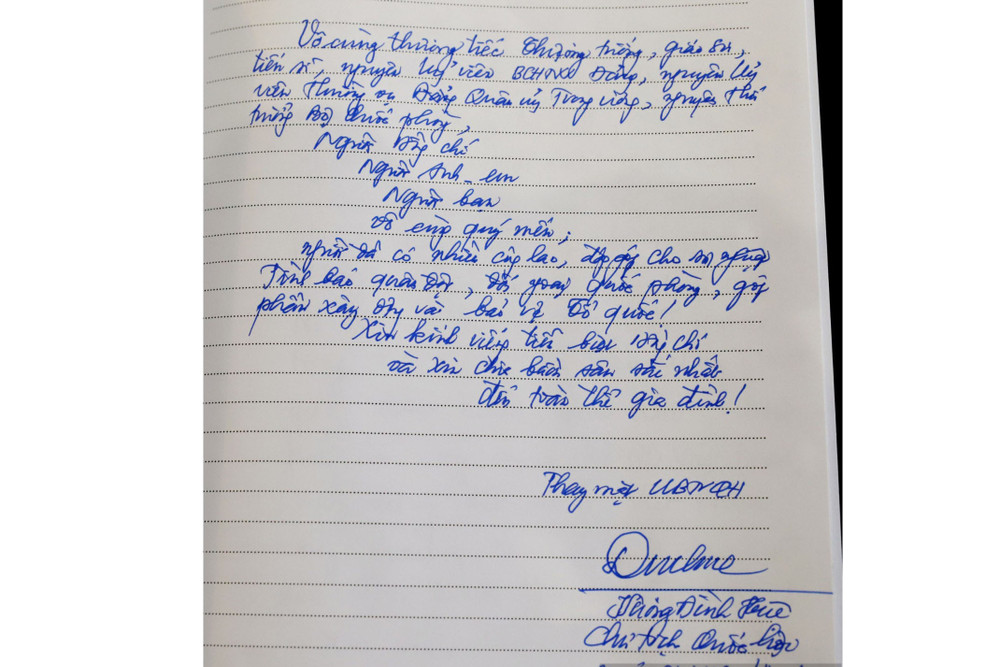 Vô cùng thương tiếc Thượng tướng, giáo sư,
tiến sĩ, nguyên Uỷ viên BCHTW Đảng, nguyên Uỷ
viên Thường vụ Đảng Quân uỷ Trung ương, nguyên Thứ
trưởng Bộ Quốc phòng,
Người đồng chí
Người Anh - em
Người bạn
vô cùng quý mến;
người đã có nhiều công lao, đóng góp cho sự nghiệp
Tình báo quân đội, đối ngoại Quốc phòng, góp
phần xây dựng và bảo vệ Tổ quốc!
Xin kính viếng tiễn biệt đồng chí
và xin chia buồn sâu sắc nhất
đến toàn thể gia đình!
Thay mặt UBTVQH
Vương Đình Huệ
Chủ tịch Quốc hội